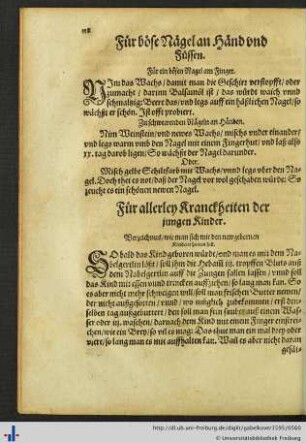 Für böse Nägel an Händ vnd
Füssen.
Für ein bösen Nagel am Finger.
NIm das Wachs / damit man die Geschirr verstopfft / oder
zumacht / darinn Balsamöl ist / das würdt waich vnnd
schmalzig: Beere das / vnd legs auff ein häßlichen Nagel / so
wächst er schön. Ist offt probiert.
Zuschwerenden Nägeln an Händen.
Nim Weinstein / vnd newes Wachs / mischs vnder einander /
vnd legs warm vmb den Nagel mit einem Fingerhut / vnd laß also
xx. tag darob ligen / So wächst der Nagel darunder.
Oder.
Misch gelbe Schilfarb mit Wachs / vnnd legs vber den Na-
gel. Doch thet es not / daß der Nagel vor wol geschaben würde: So
zeucht es ein schönen newen Nagel.
Für allerley Kranckheiten der
jungen Kinder.
Verzeichnus / wie man sich mit den new gebornen
Kindern halten soll.
SO bald das Kind geboren würdt / vnd man es mit dem Na-
belgertlin löst / soll ihm die Hebamm iij. tropffen Bluts auß
dem Nabelgertlin auff die Zungen fallen lassen / vnnd soll
das Kind mit essen vnnd trincken auffziehen / so lang man kan. So
es aber nicht mehr schweigen will / soll man frischen Butter nemen /
der nicht außgesotten / vnnd / wo müglich zubekommen / erst den-
selben tag außgeruttert / den soll man fein sauber auß einem Was-
ser oder iij. waschen / darnach dem Kind mit einem Finger einstrei-
chen / wie ein Brey / so vil es mag: Das thut man ein mal drey oder
viere / so lang man es mit auffhalten kan. Wail es aber nicht daran
http://dl.ub.uni-freiburg.de/diglit/gabelkover1595/0560
© Universitätsbibliothek Freiburg